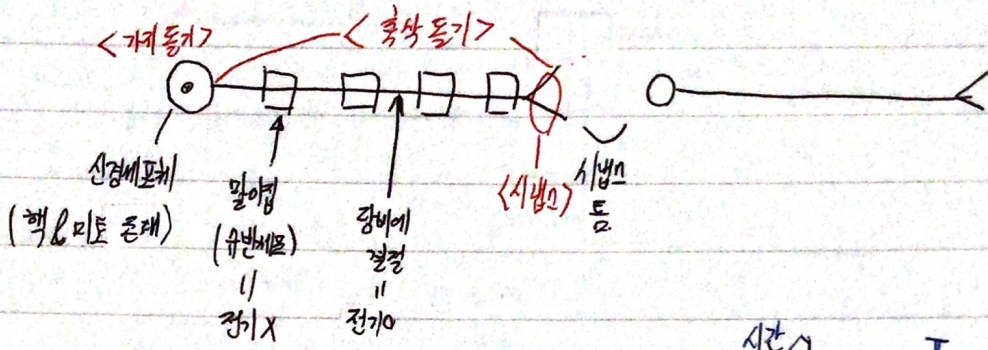 <가지돌기>
<축삭돌기>
신경세포체
(핵 & 미토 존재)
말이집
(슈반세포)
=
전기 X
랑비에
결절
=
전기 O
<시냅스>
시냅스
틈
시간